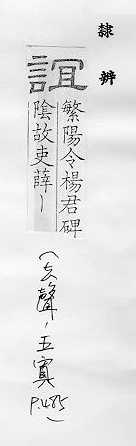 隸辨
誼
繁陽令楊君碑
陰故吏薛丨
(去聲、五寘
P.485)